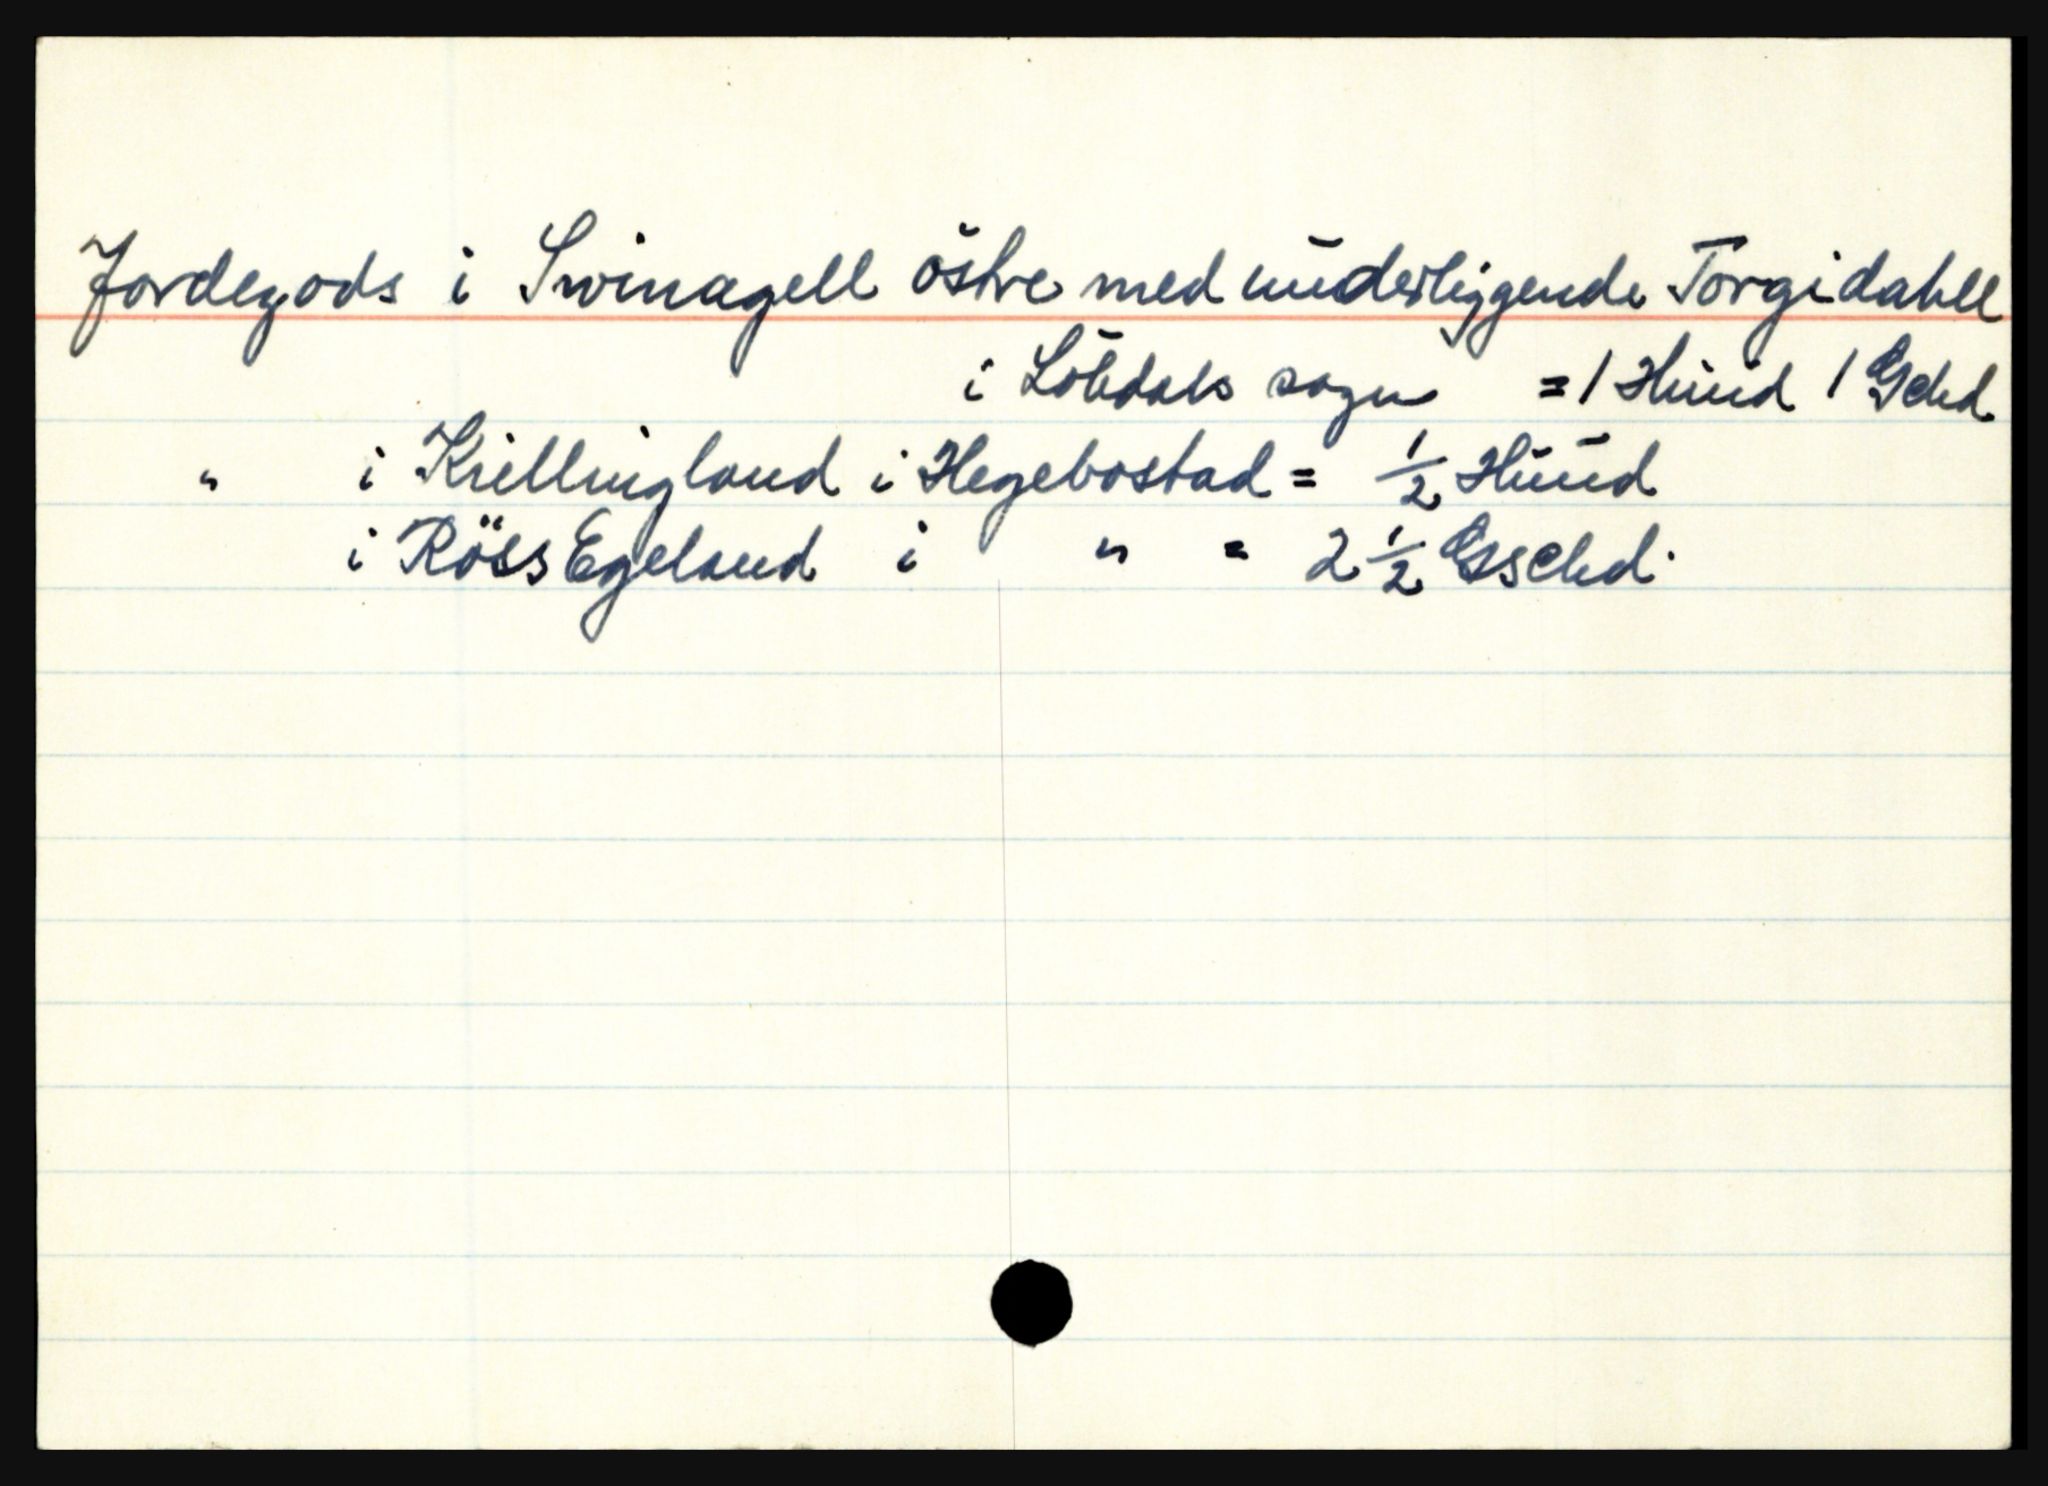 Jordegods i Swinagell östre med underliggende Torgidahll
i Löhdals sogn = 1 Hud 1 Gchd
" i Kiellingland i Hegebostad = 1/2 Hud
i Röss Egeland i " = 2 1/2 Gschd.